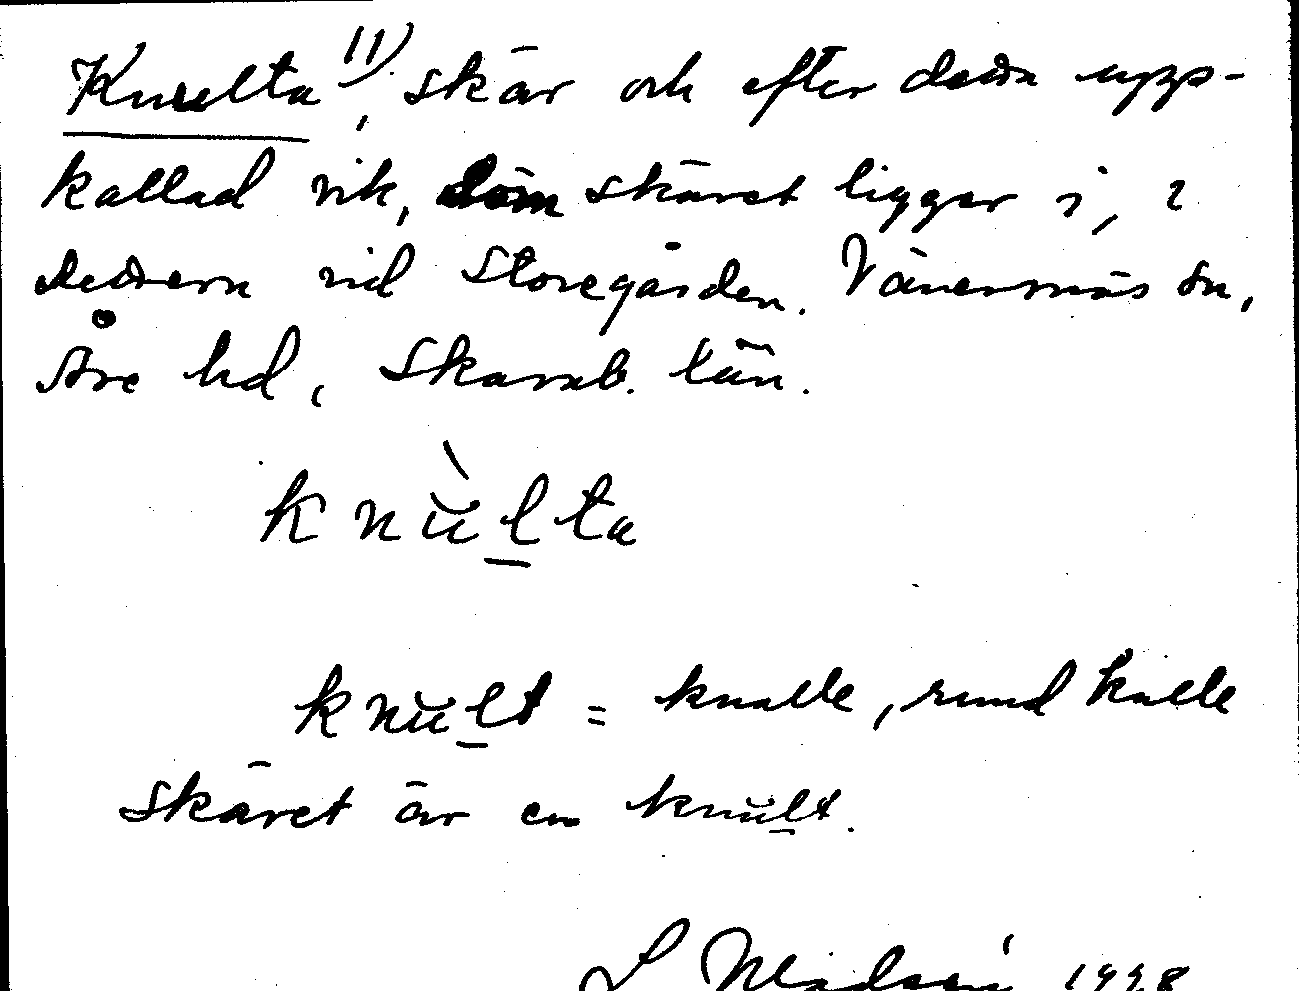 Knulta 11), skär och efter detta upp-
kallad vik, som skäret ligger i, i
Vättern vid Storegården. Vänersnäs sn,
Åse hd, Skarab. län.
knŭlta
knŭlt = knalle, rund kulle
Skäret är en knŭlt.
1998